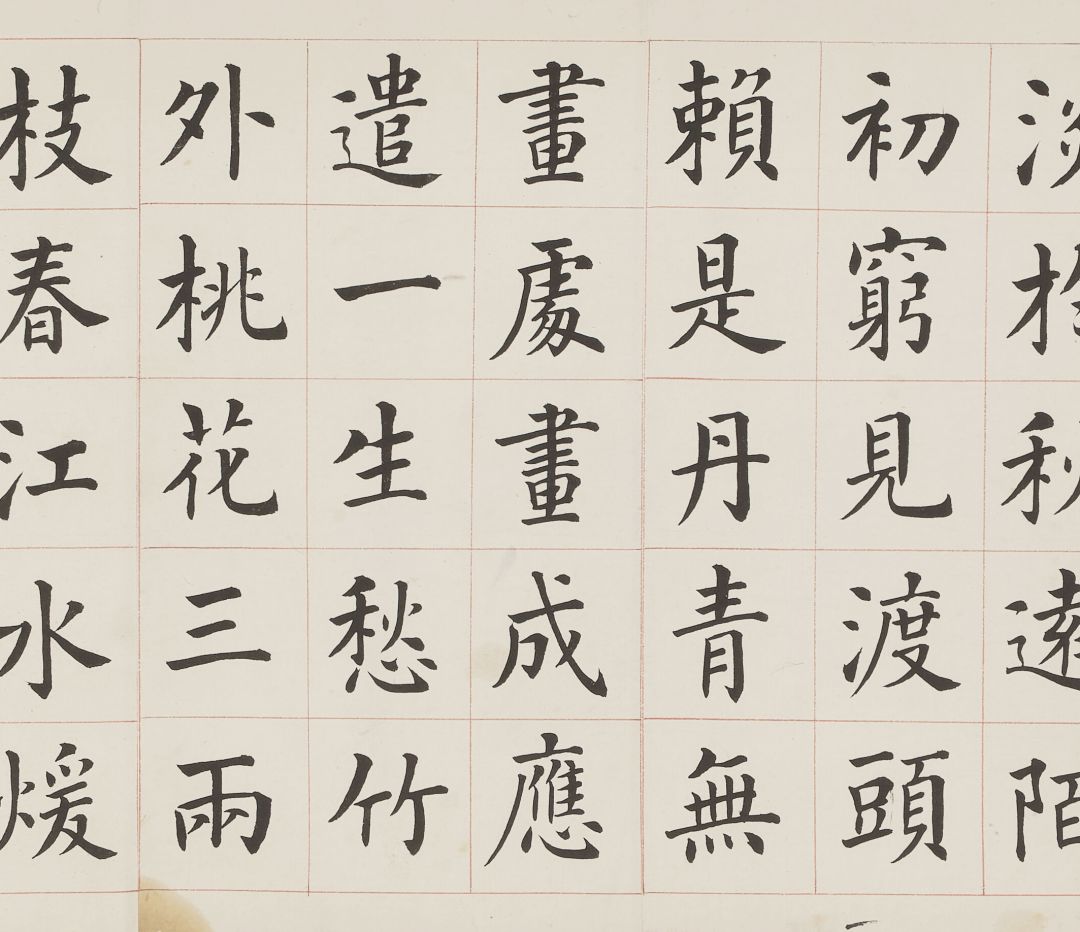 淡於秋遠陌
初窮見渡頭
賴是丹青無
畫處畫成應
遣一生愁竹
外桃花三兩
枝春江水煖